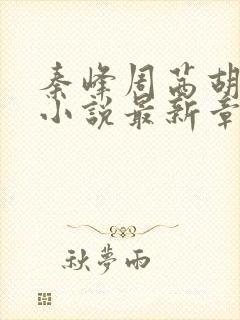 秦峰周茜胡
小說最新章
秋夢雨